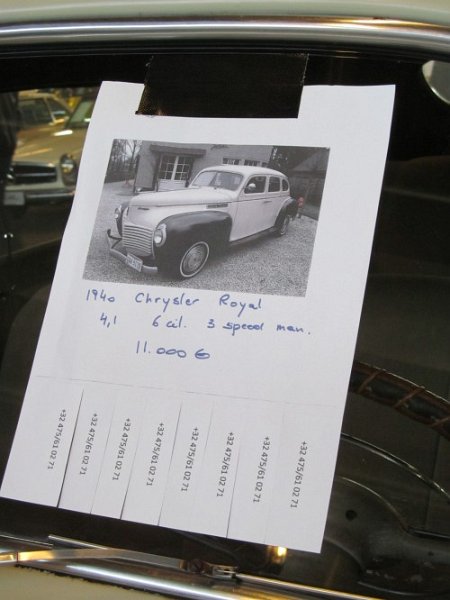 1940 Chrysler Royal
4,1 6 cil. 3 speed man.
11.000 €
+32 475/61 02 71
+32 475/61 02 71
+32 475/61 02 71
+32 475/61 02 71
+32 475/61 02 71
+32 475/61 02 71
+32 475/61 02 71
+32 475/61 02 71